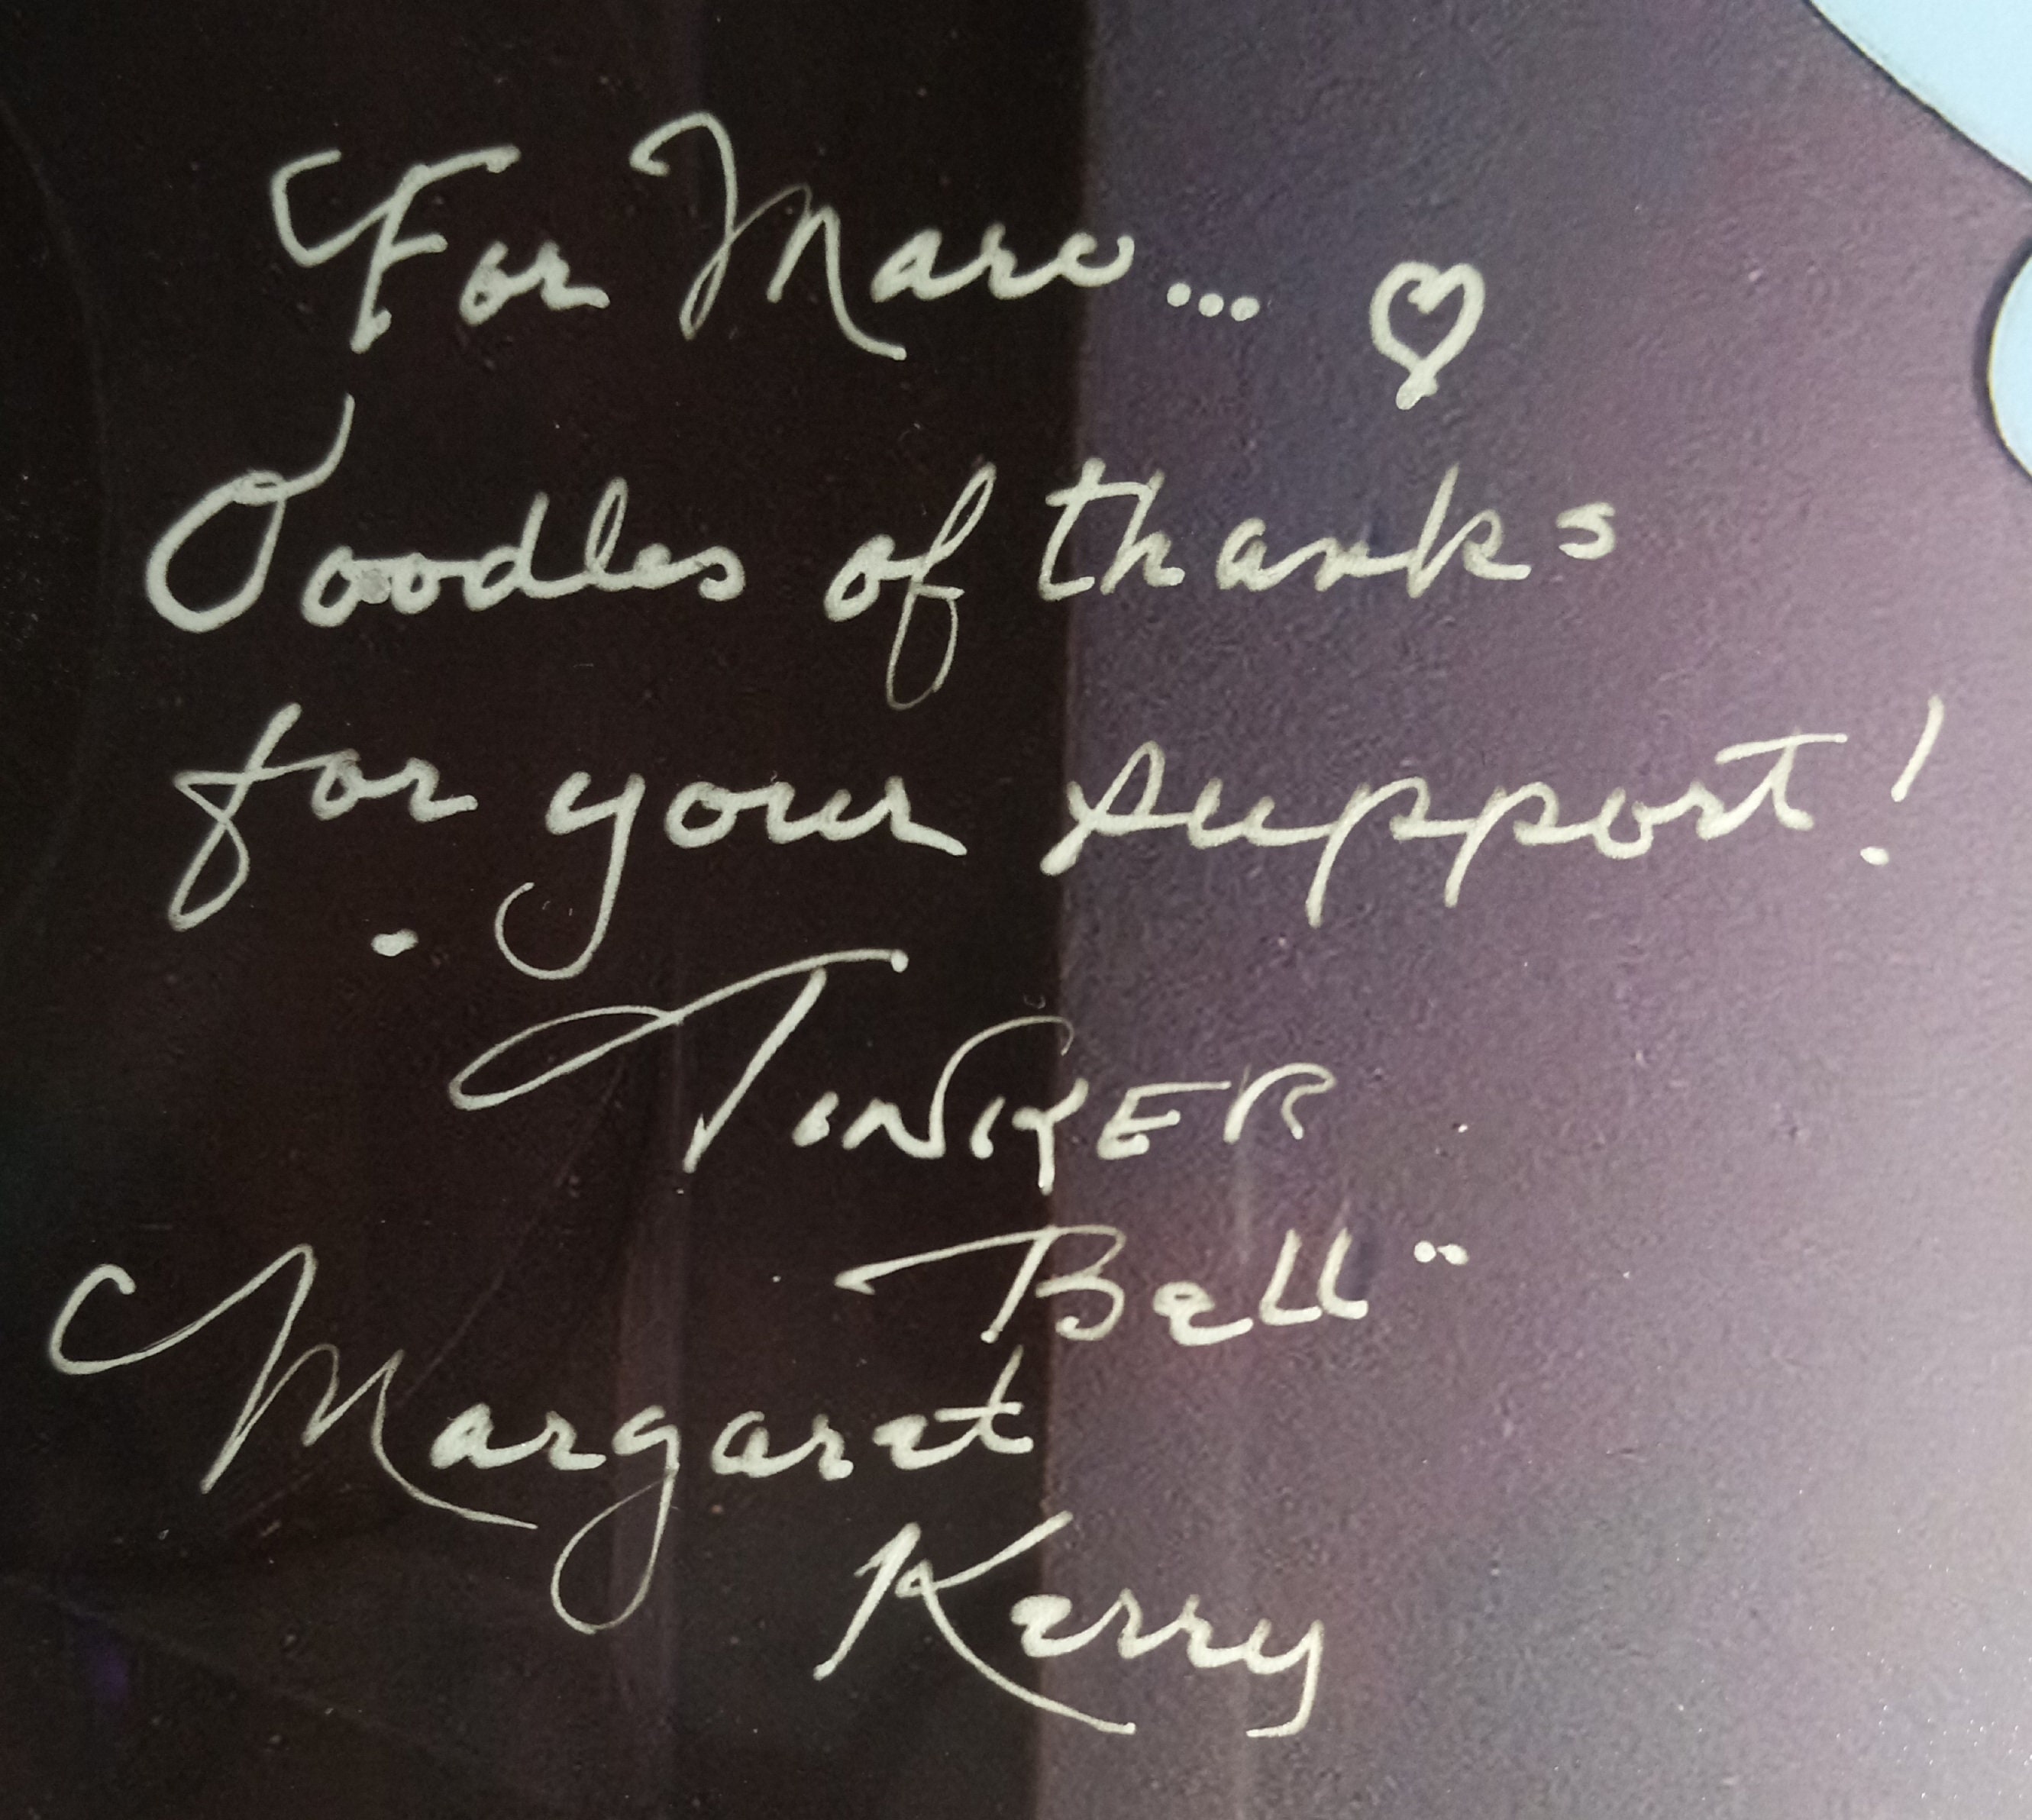 For Marc... ♡
Ooodles of thanks
for your support!
TINKER
Bell
Margaret
Kerry